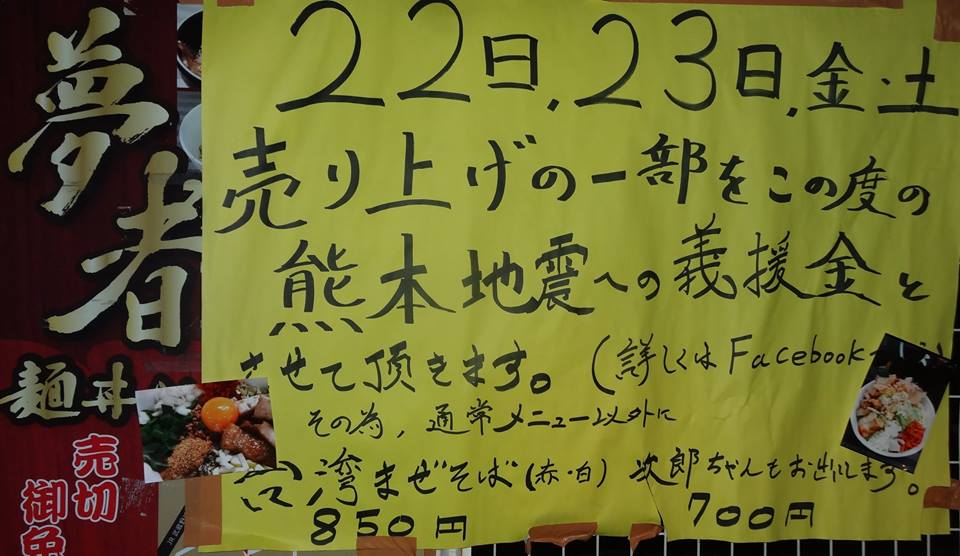 22日,23日,金・土
売り上げの一部をこの度の
熊本地震への義援金と
させて頂きます。(詳しくはFacebook
その為,通常メニュー以外に
台湾まぜそば(赤・白) 次郎ちゃんもお出しします。
850円 700円
夢者
麺丼
売切